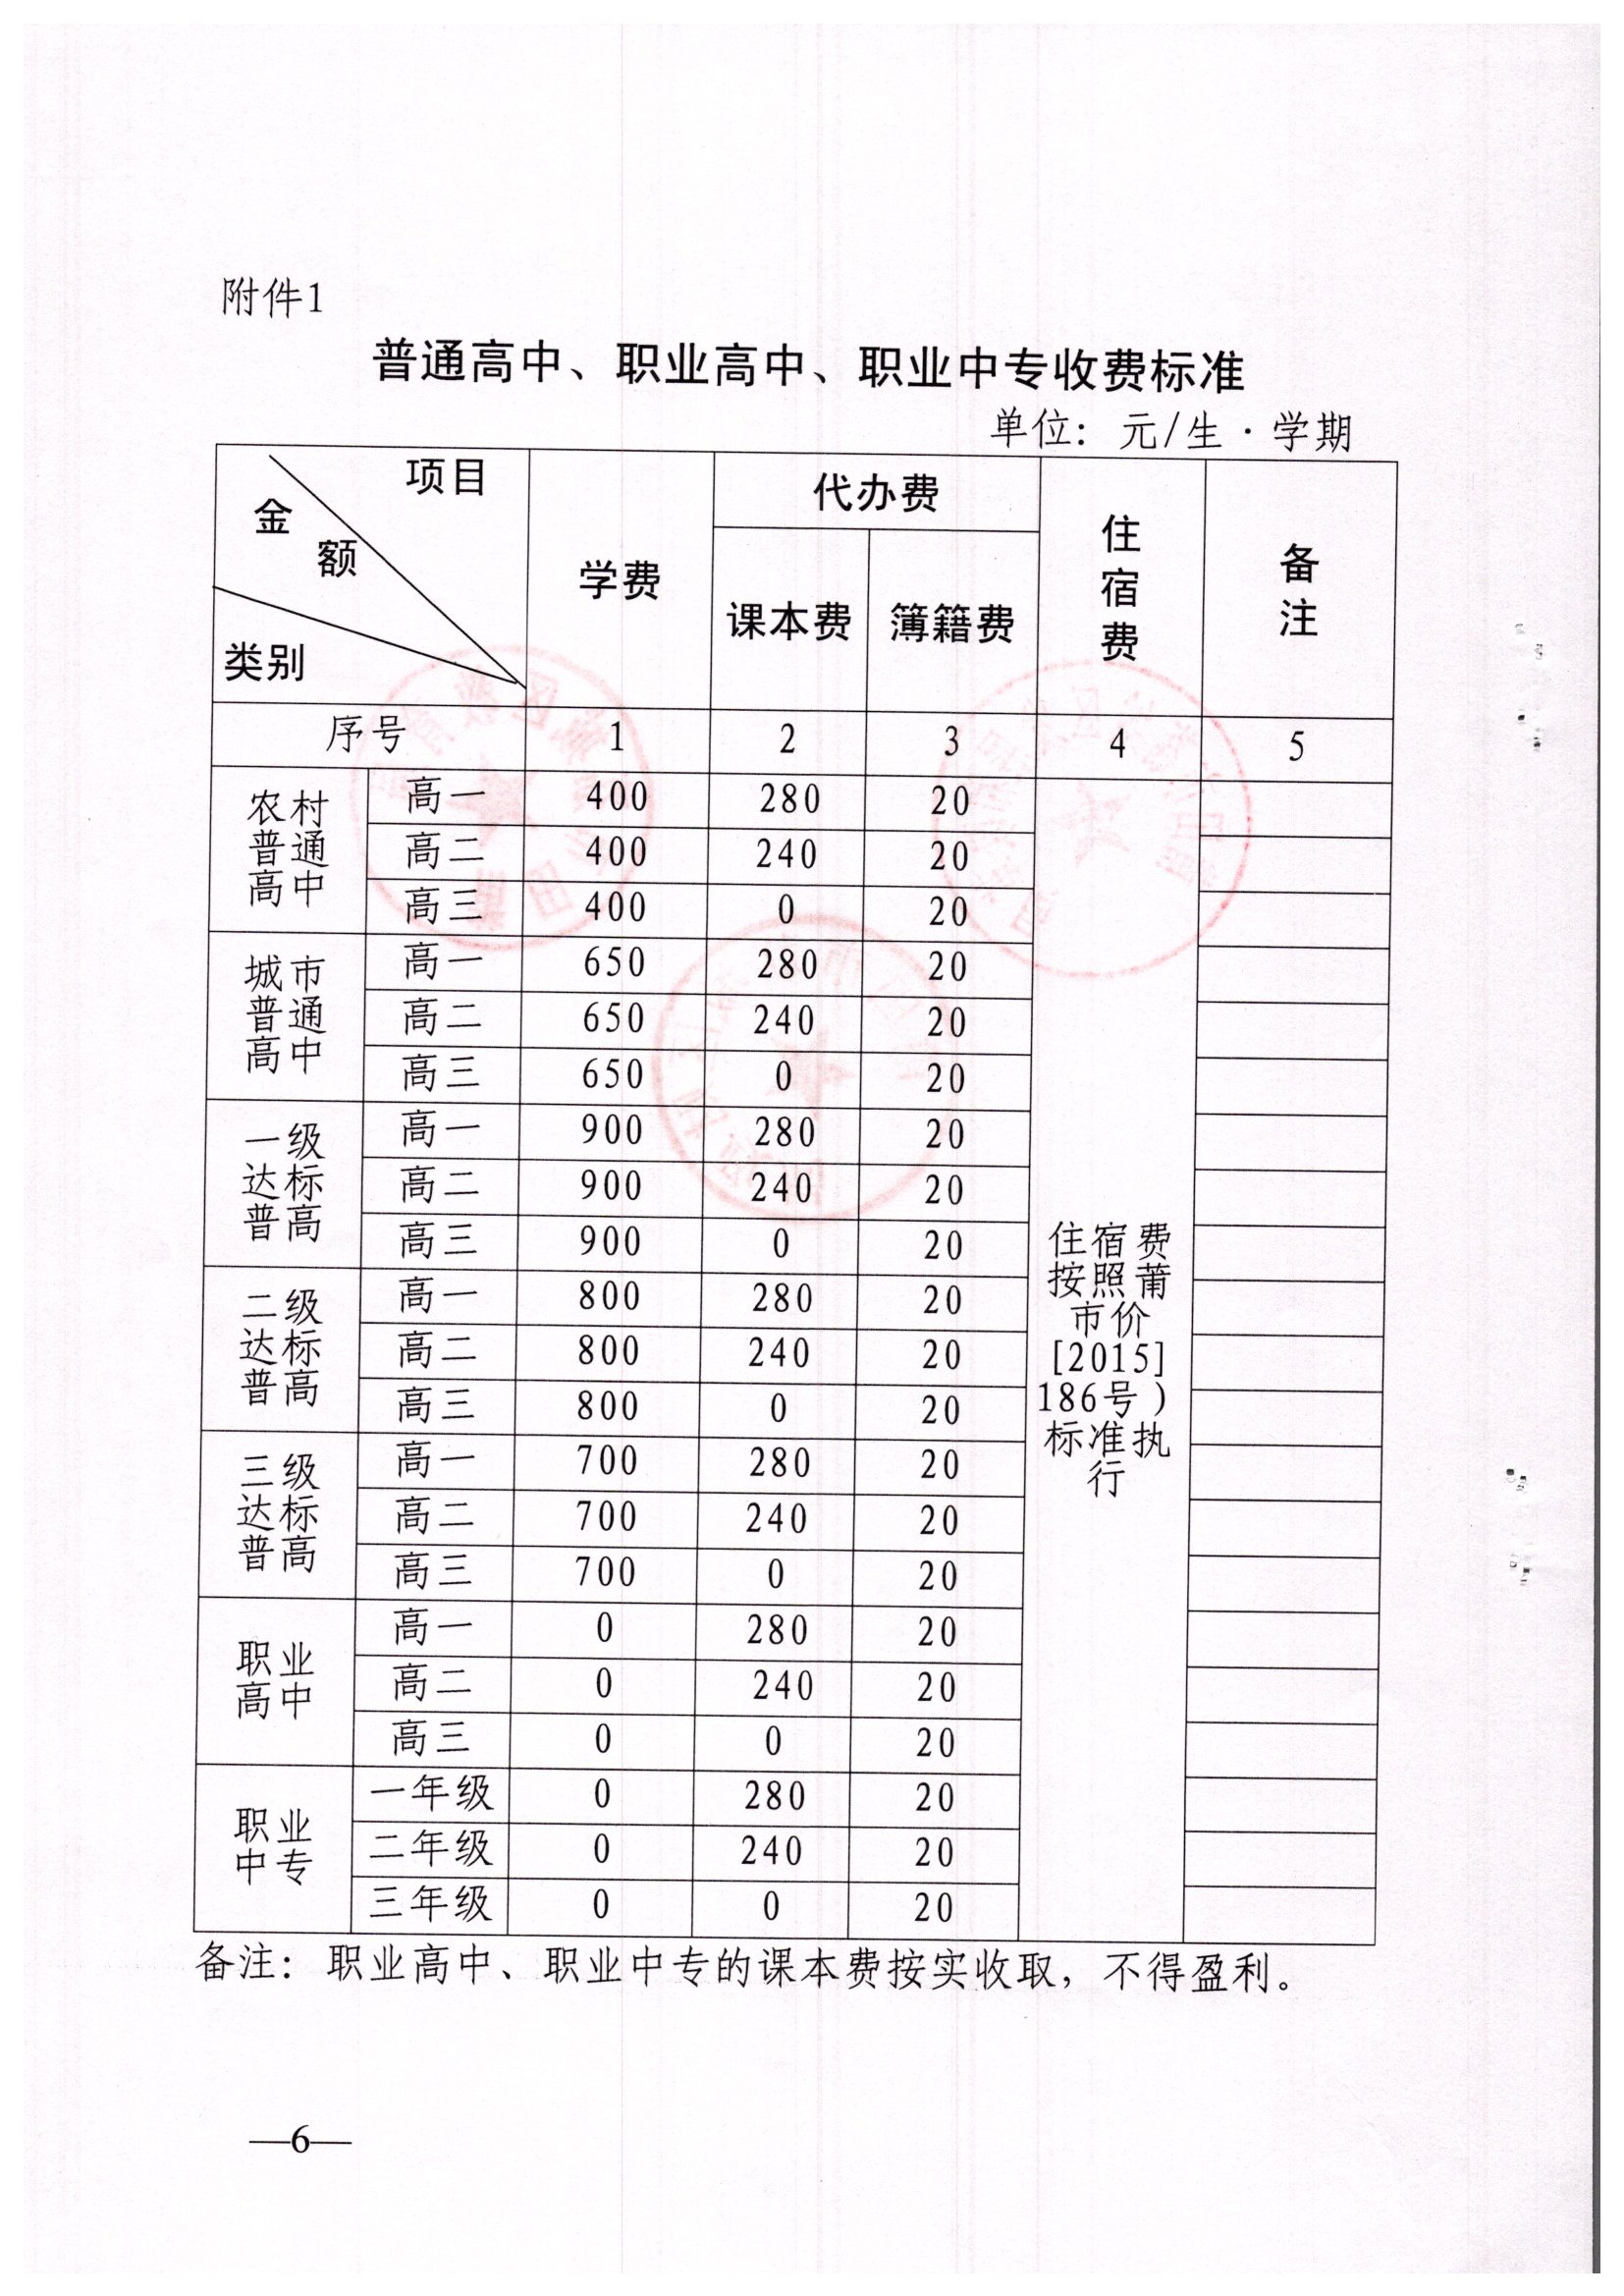 附件1
普通高中、职业高中、职业中专收费标准
单位：元/生·学期
项目
金额
类别
学费
代办费
课本费 簿籍费
住宿费
备注
序号 1 2 3 4 5
农村普通高中
高一 400 280 20
高二 400 240 20
高三 400 0 20
城市普通高中
高一 650 280 20
高二 650 240 20
高三 650 0 20
一级达标普高
高一 900 280 20
高二 900 240 20
高三 900 0 20
二级达标普高
高一 800 280 20
高二 800 240 20
高三 800 0 20
三级达标普高
高一 700 280 20
高二 700 240 20
高三 700 0 20
职业高中
高一 0 280 20
高二 0 240 20
高三 0 0 20
职业中专
一年级 0 280 20
二年级 0 240 20
三年级 0 0 20
住宿费
按照莆
市价
[2015]
186号）
标准执
行
备注：职业高中、职业中专的课本费按实收取，不得盈利。
—6—